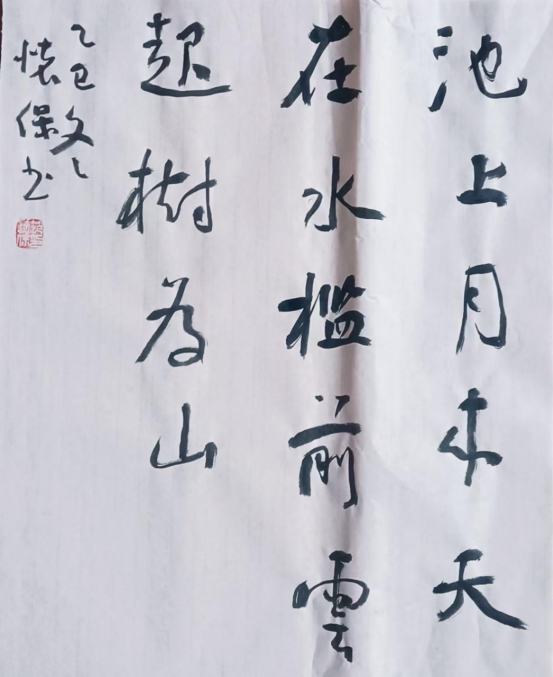 池上月来天
在水檻前雲
起樹為山
乙巳冬
懷保书